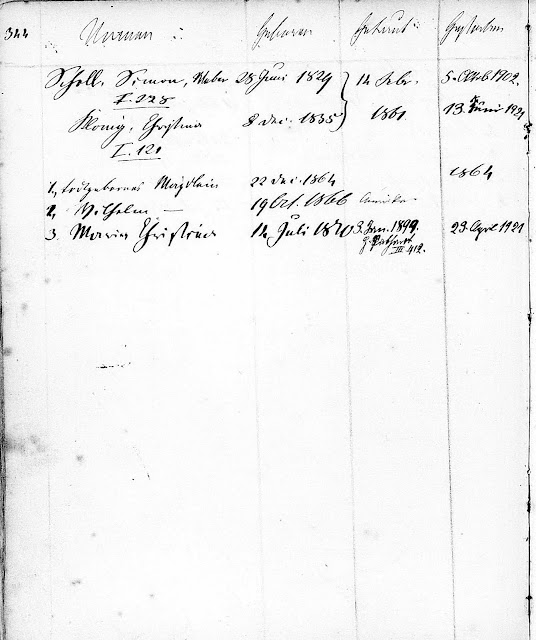 344 Namen Geboren Getraut Gestorben
Scholl, Simon, Weber 28 Juni 1829 14 Febr. 5. Okt 1902.
I. 328
König, Christina 8 Dec. 1835 1861 13. Juni 1921
I. 120
1, todtgebornes Mägdlein 22 Dec. 1864 1864
2, Wilhelm — 19 Oct. 1866 Amerika
3. Maria Christina 14 Juli 1870 3. Jan. 1899. 23. April 1921
III 412.